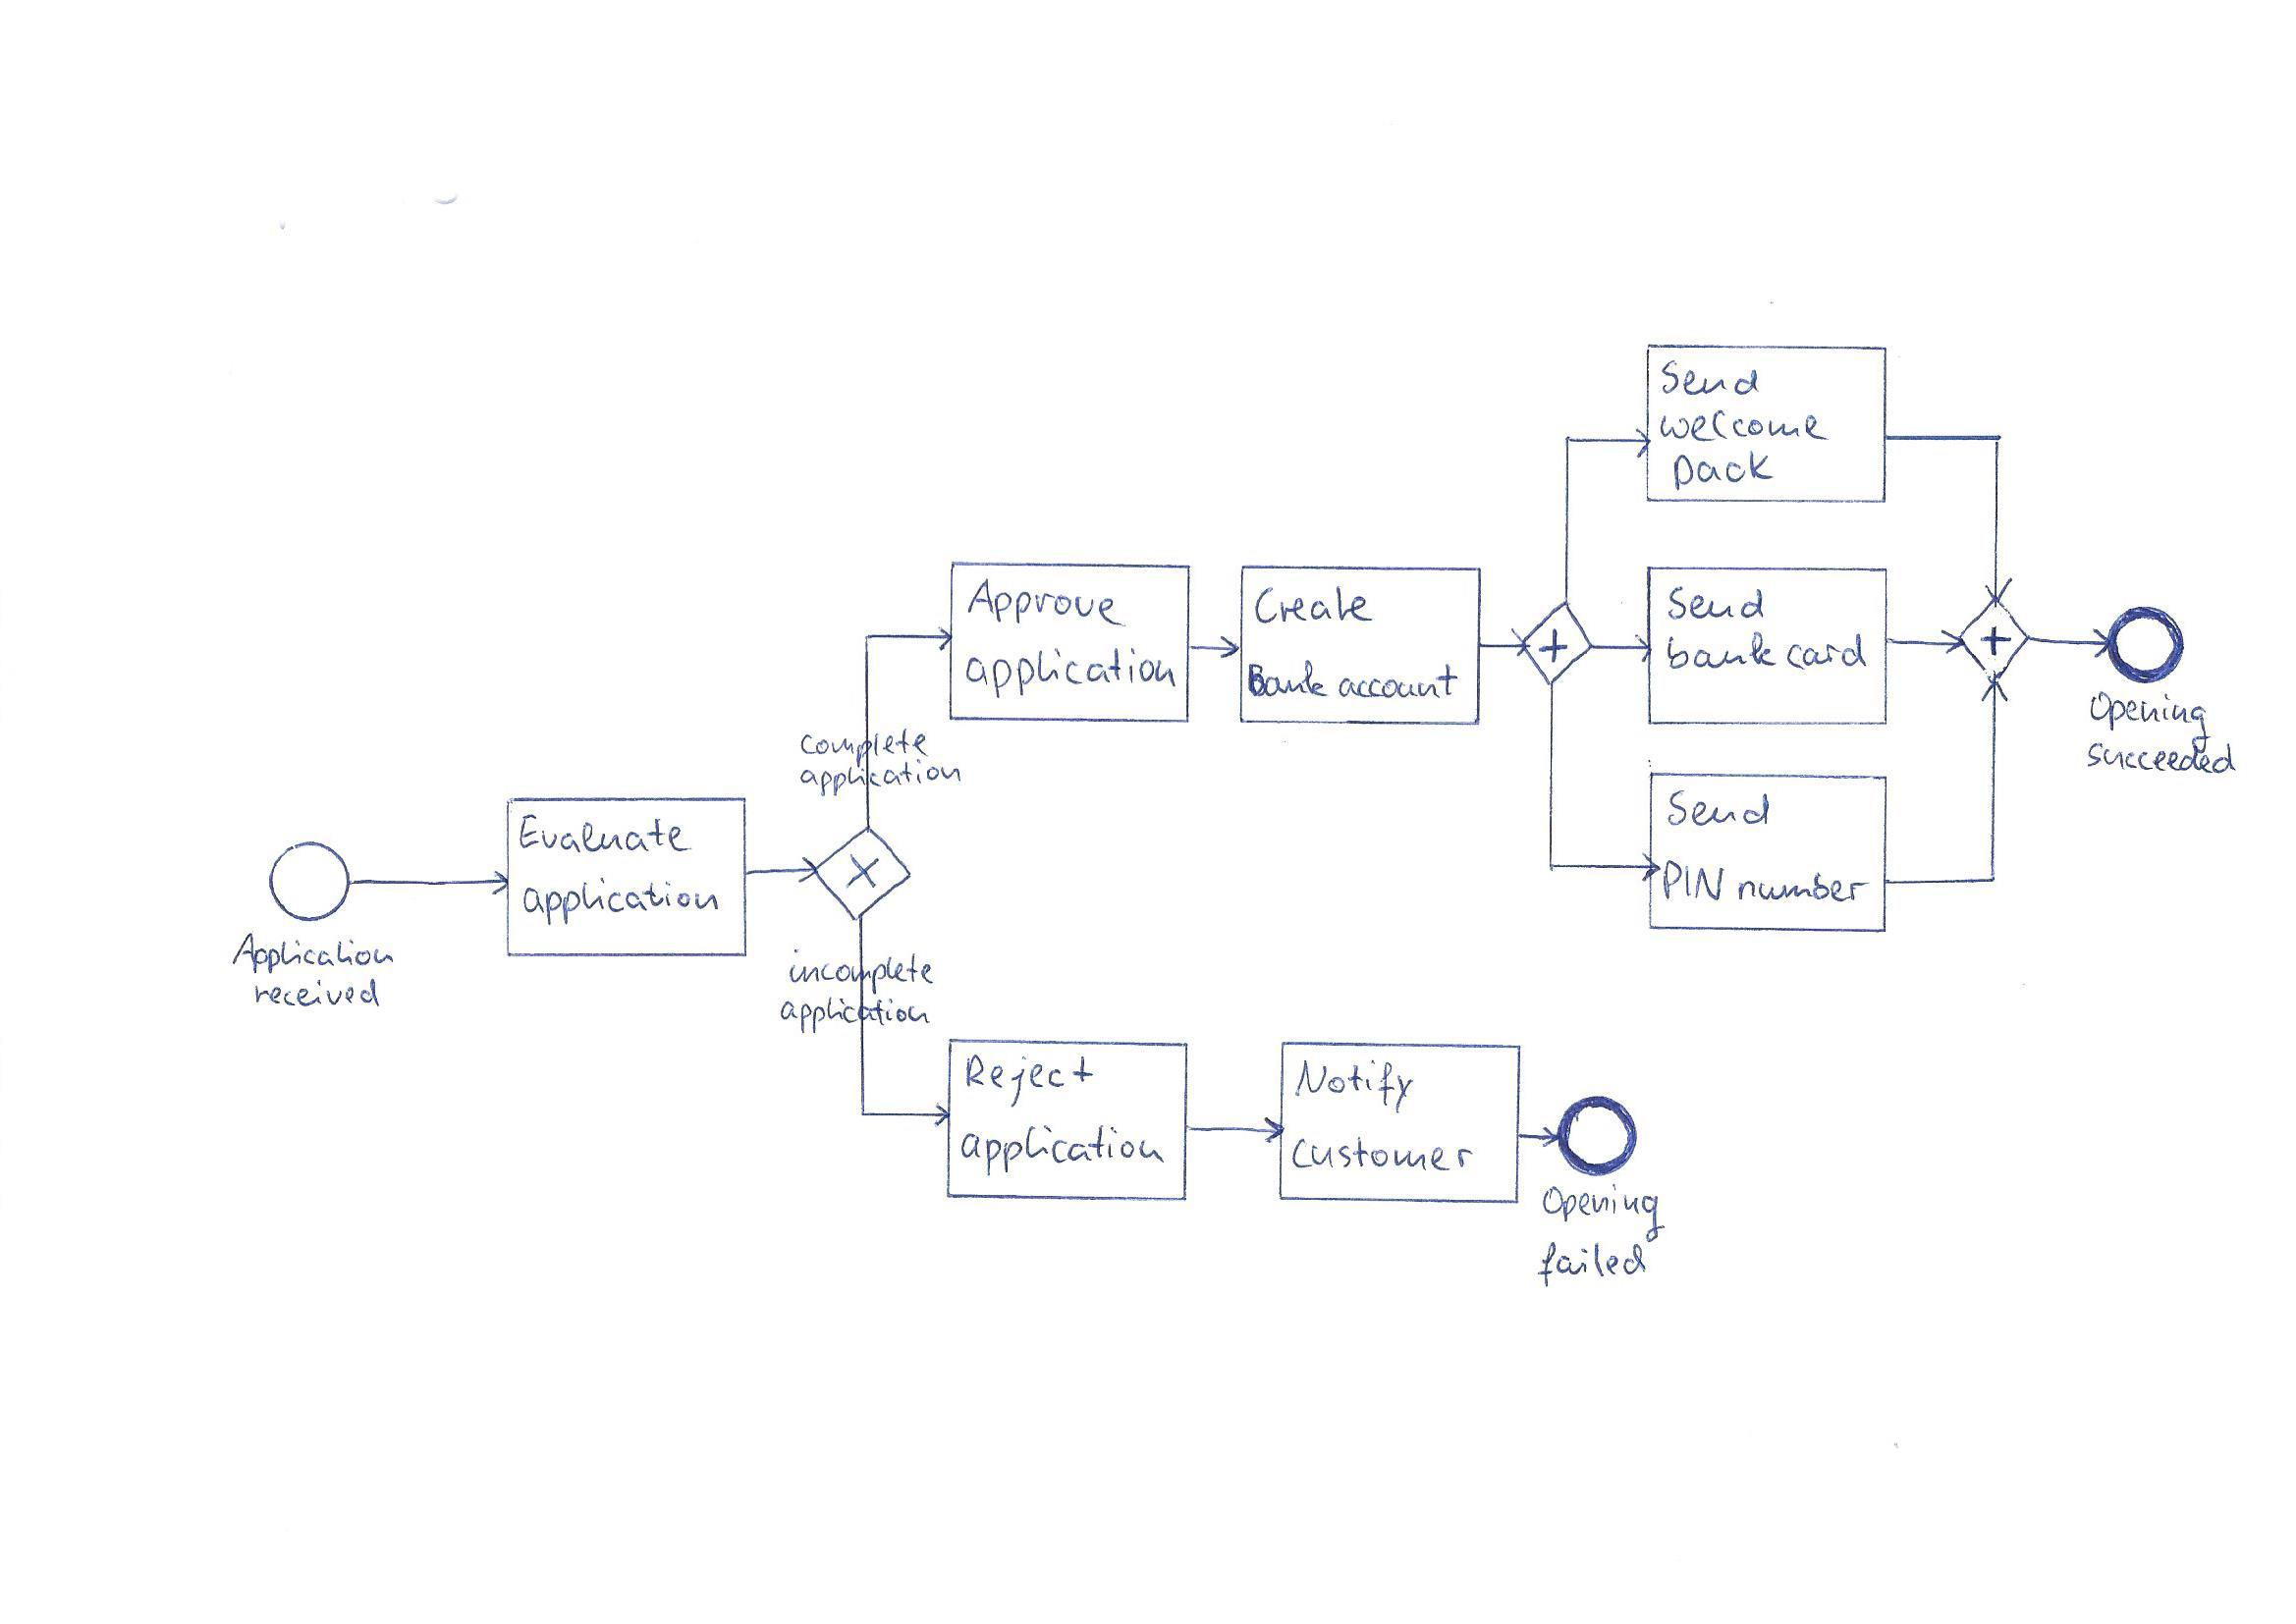 Application
received
Evaluate
application
complete
application
incomplete
application
Approve
application
Create
Bank account
Send
welcome
pack
Send
bank card
Send
PIN number
Opening
succeeded
Reject
application
Notify
customer
Opening
failed